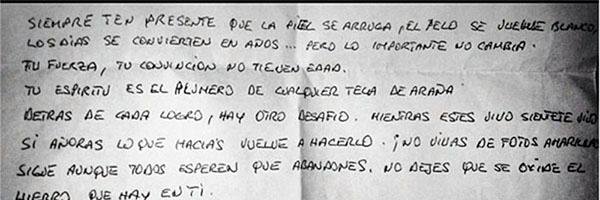 SIEMPRE TEN PRESENTE QUE LA PIEL SE ARRUGA, EL PELO SE VUELVE BLANCO,
LOS DIAS SE CONVIERTEN EN AÑOS... PERO LO IMPORTANTE NO CAMBIA.
TU FUERZA, TU CONVICCION NO TIENEN EDAD.
TU ESPIRITU ES EL PLUMERO DE CUALQUIER TELA DE ARAÑA.
DETRAS DE CADA LOGRO, HAY OTRO DESAFIO. MIENTRAS ESTES VIVO SIENTETE VIVO
SI AÑORAS LO QUE HACIAS VUELVE A HACERLO. ¡NO VIVAS DE FOTOS AMARILLAS
SIGUE AUNQUE TODOS ESPEREN QUE ABANDONES. NO DEJES QUE SE OXIDE EL
HIERRO QUE HAY EN TI.